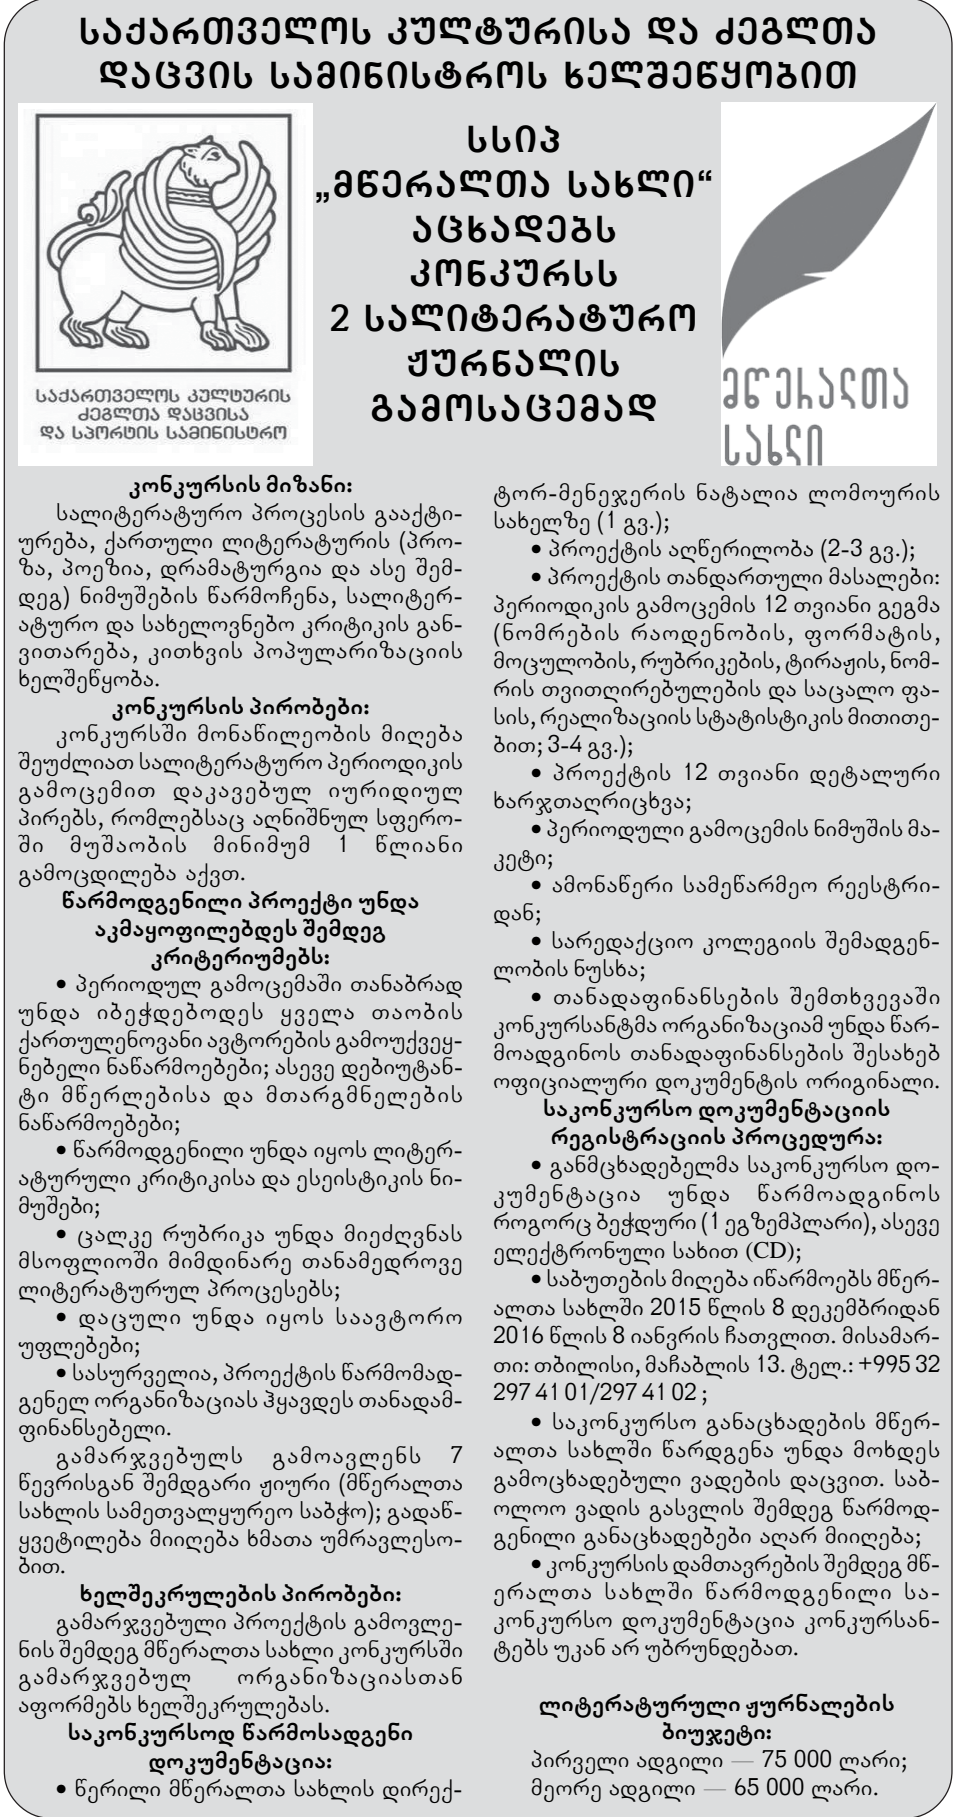 საქართველოს კულტურისა და ძეგლთა
დაცვის სამინისტროს ხელშეწყობით
საქართველოს კულტურის
ძეგლთა დაცვისა
და სპორტის სამინისტრო
სსიპ
„მწერალთა სახლი“
აცხადებს
კონკურსს
2 სალიტერატურო
ჟურნალის
გამოსაცემად
მწერალთა
სახლი
კონკურსის მიზანი:
სალიტერატურო პროცესის გააქტი-
ურება, ქართული ლიტერატურის (პრო-
ზა, პოეზია, დრამატურგია და ასე შემ-
დეგ) ნიმუშების წარმოჩენა, სალიტერ-
ატურო და სახელოვნებო კრიტიკის გან-
ვითარება, კითხვის პოპულარიზაციის
ხელშეწყობა.
კონკურსის პირობები:
კონკურსში მონაწილეობის მიღება
შეუძლიათ სალიტერატურო პერიოდიკის
გამოცემით დაკავებულ იურიდიულ
პირებს, რომლებსაც აღნიშნულ სფერო-
ში მუშაობის მინიმუმ 1 წლიანი
გამოცდილება აქვთ.
წარმოდგენილი პროექტი უნდა
აკმაყოფილებდეს შემდეგ
კრიტერიუმებს:
• პერიოდულ გამოცემაში თანაბრად
უნდა იბეჭდებოდეს ყველა თაობის
ქართულენოვანი ავტორების გამოუქვეყ-
ნებელი ნაწარმოებები; ასევე დებიუტან-
ტი მწერლებისა და მთარგმნელების
ნაწარმოებები;
• წარმოდგენილი უნდა იყოს ლიტერ-
ატურული კრიტიკისა და ესეისტიკის ნი-
მუშები;
• ცალკე რუბრიკა უნდა მიეძღვნას
მსოფლიოში მიმდინარე თანამედროვე
ლიტერატურულ პროცესებს;
• დაცული უნდა იყოს საავტორო
უფლებები;
• სასურველია, პროექტის წარმომად-
გენელ ორგანიზაციას ჰყავდეს თანადამ-
ფინანსებელი.
გამარჯვებულს გამოავლენს 7
წევრისგან შემდგარი ჟიური (მწერალთა
სახლის სამეთვალყურეო საბჭო); გადაწ-
ყვეტილება მიიღება ხმათა უმრავლესო-
ბით.
ხელშეკრულების პირობები:
გამარჯვებული პროექტის გამოვლე-
ნის შემდეგ მწერალთა სახლი კონკურსში
გამარჯვებულ ორგანიზაციასთან
აფორმებს ხელშეკრულებას.
საკონკურსოდ წარმოსადგენი
დოკუმენტაცია:
• წერილი მწერალთა სახლის დირექ-
ტორ-მენეჯერის ნატალია ლომოურის
სახელზე (1 გვ.);
• პროექტის აღწერილობა (2-3 გვ.);
• პროექტის თანდართული მასალები:
პერიოდიკის გამოცემის 12 თვიანი გეგმა
(ნომრების რაოდენობის, ფორმატის,
მოცულობის, რუბრიკების, ტირაჟის, ნომ-
რის თვითღირებულების და საცალო ფა-
სის, რეალიზაციის სტატისტიკის მითითე-
ბით; 3-4 გვ.);
• პროექტის 12 თვიანი დეტალური
ხარჯთაღრიცხვა;
• პერიოდული გამოცემის ნიმუშის მა-
კეტი;
• ამონაწერი სამეწარმეო რეესტრი-
დან;
• სარედაქციო კოლეგიის შემადგენ-
ლობის ნუსხა;
• თანადაფინანსების შემთხვევაში
კონკურსანტმა ორგანიზაციამ უნდა წარ-
მოადგინოს თანადაფინანსების შესახებ
ოფიციალური დოკუმენტის ორიგინალი.
საკონკურსო დოკუმენტაციის
რეგისტრაციის პროცედურა:
• განმცხადებელმა საკონკურსო დო-
კუმენტაცია უნდა წარმოადგინოს
როგორც ბეჭდური (1 ეგზემპლარი), ასევე
ელექტრონული სახით (CD);
• საბუთების მიღება იწარმოებს მწერ-
ალთა სახლში 2015 წლის 8 დეკემბრიდან
2016 წლის 8 იანვრის ჩათვლით. მისამარ-
თი: თბილისი, მაჩაბლის 13. ტელ.: +995 32
297 41 01/297 41 02 ;
• საკონკურსო განაცხადების მწერ-
ალთა სახლში წარდგენა უნდა მოხდეს
გამოცხადებული ვადების დაცვით. საბ-
ოლოო ვადის გასვლის შემდეგ წარმოდ-
გენილი განაცხადებები აღარ მიიღება;
• კონკურსის დამთავრების შემდეგ მწ-
ერალთა სახლში წარმოდგენილი სა-
კონკურსო დოკუმენტაცია კონკურსან-
ტებს უკან არ უბრუნდებათ.
ლიტერატურული ჟურნალების
ბიუჯეტი:
პირველი ადგილი — 75 000 ლარი;
მეორე ადგილი — 65 000 ლარი.